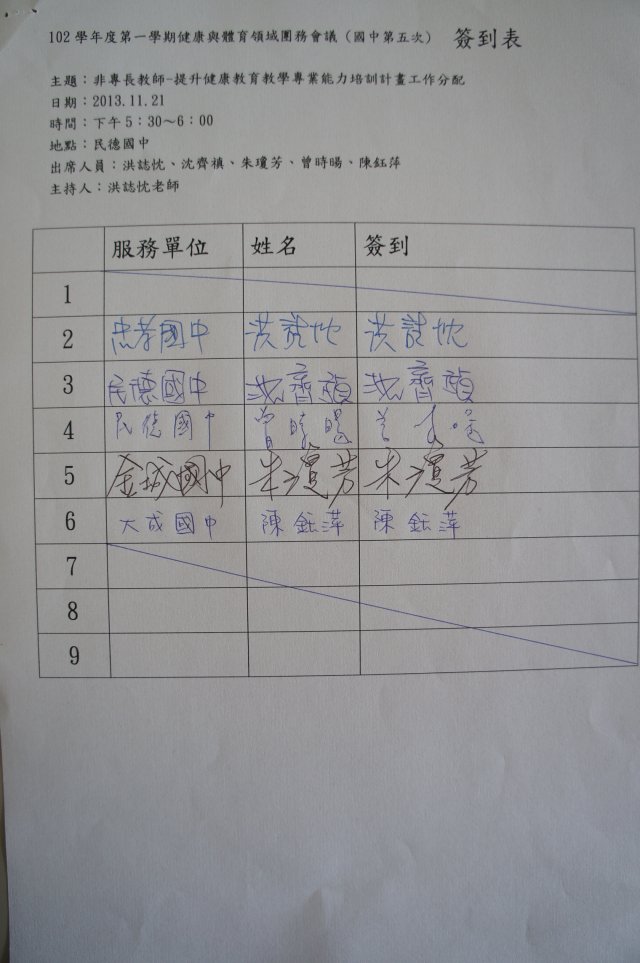 102 學年度第一學期健康與體育領域團務會議（國中第五次） 簽到表
主題：非專長教師-提升健康教育教學專業能力培訓計畫工作分配
日期：2013.11.21
時間：下午 5：30～6：00
地點：民德國中
出席人員：洪誌忱、沈齊禛、朱瓊芳、曾時暘、陳鈺萍
主持人：洪誌忱老師
服務單位 姓名 簽到
1
2 忠孝國中 洪誌忱 洪誌忱
3 民德國中 沈齊禛 沈齊禛
4 民德國中 曾時暘
5 金城國中 朱瓊芳 朱瓊芳
6 大成國中 陳鈺萍 陳鈺萍
7
8
9